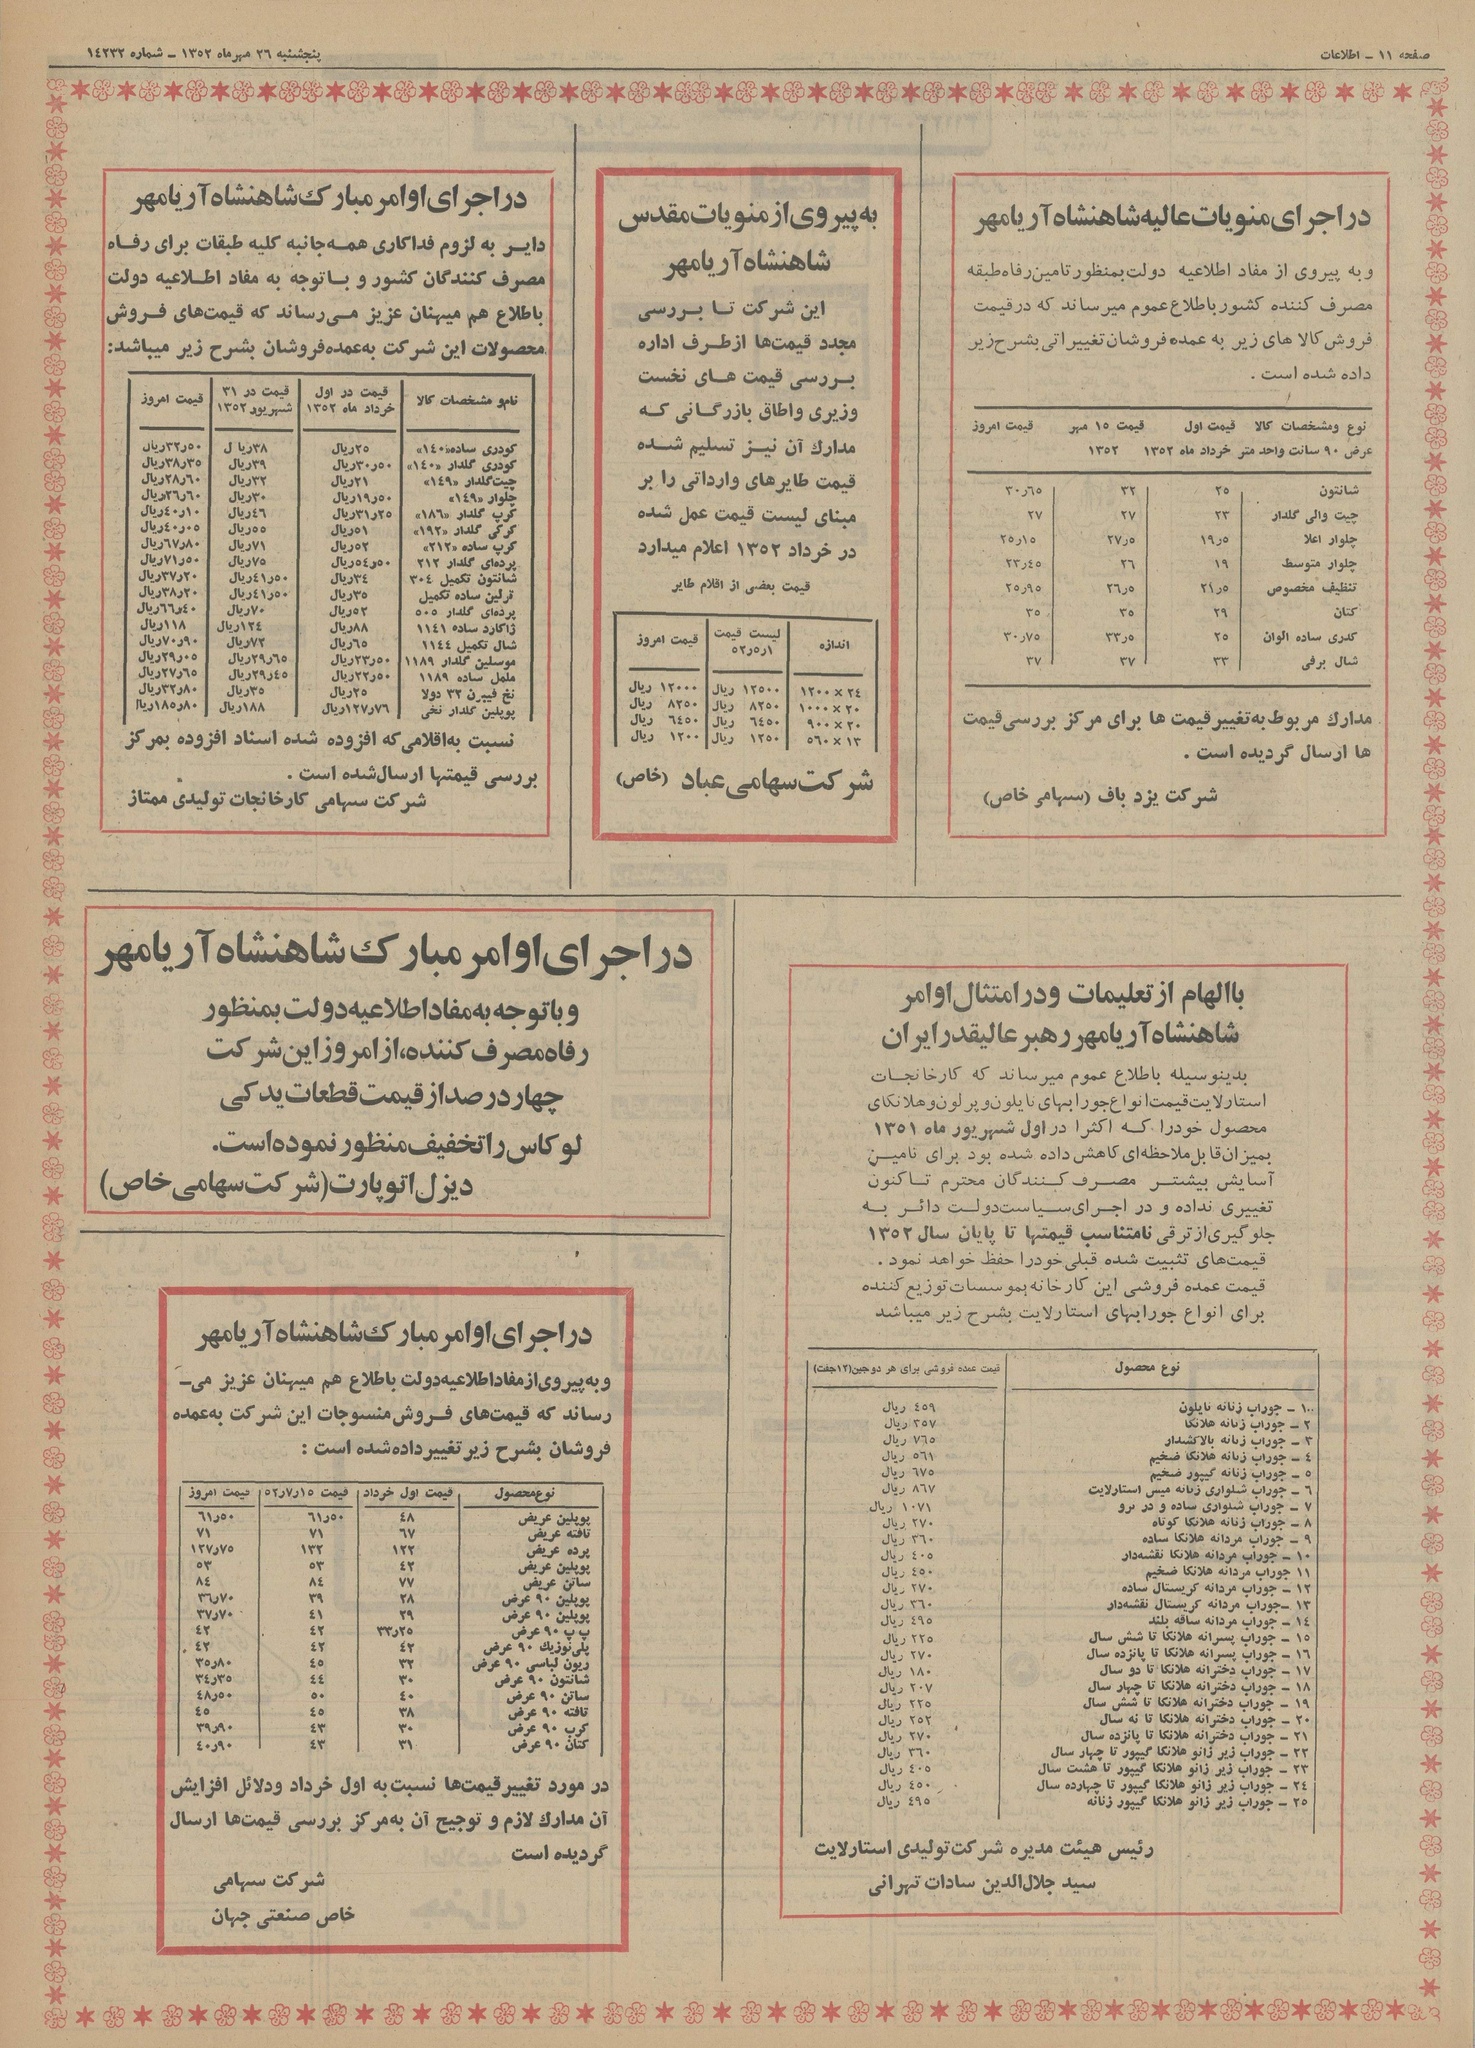 صفحه ۱۱ - اطلاعات
پنجشنبه ۲۶ مهر ماه ۱۳۵۲ - شماره ۱۴۲۳۲
در اجرای منویات عالیه شاهنشاه آریامهر
و به پیروی از مفاد اطلاعیه دولت بمنظور تامین رفاه طبقه
مصرف کننده کشور باطلاع عموم میرساند که در قیمت
فروش کالا های زیر به عمده فروشان تغییراتی بشرح زیر
داده شده است .
نوع ومشخصات کالا قیمت اول قیمت ۱۵ مهر قیمت امروز
عرض ۹۰ سانت واحد متر خرداد ماه ۱۳۵۲ ۱۳۵۲
شانتون ۲۵ ۳۲ ۳۰ر۶۵
چیت والی گلدار ۲۳ ۲۷ ۲۷
چلوار اعلا ۱۹ر۵ ۲۷ر۵ ۲۵ر۱۵
چلوار متوسط ۱۹ ۲۶ ۲۳ر۴۵
تنظیف مخصوص ۲۱ر۵ ۲۶ر۵ ۲۵ر۹۵
کتان ۲۹ ۳۵ ۳۵
کدری ساده الوان ۲۵ ۳۳ر۵ ۳۰ر۷۵
شال برفی ۳۳ ۳۷ ۳۷
مدارك مربوط به تغییر قیمت ها برای مرکز بررسی قیمت
ها ارسال گردیده است .
شرکت یزد باف (سهامی خاص)
به پیروی از منویات مقدس
شاهنشاه آریامهر
این شرکت تا بررسی
مجدد قیمت‌ها از طرف اداره
بررسی قیمت های نخست
وزیری واطاق بازرگانی که
مدارك آن نیز تسلیم شده
قیمت طایرهای وارداتی را بر
مبنای لیست قیمت عمل شده
در خرداد ۱۳۵۲ اعلام میدارد
قیمت بعضی از اقلام طایر
اندازه لیست قیمت ۱ر۵ر۵۲ قیمت امروز
۲۴ × ۱۲۰۰ ۱۲۵۰۰ ریال ۱۲۰۰۰ ریال
۲۰ × ۱۰۰۰ ۸۲۵۰ ریال ۸۲۵۰ ریال
۲۰ × ۹۰۰ ۶۴۵۰ ریال ۶۴۵۰ ریال
۱۳ × ۵۶۰ ۱۲۵۰ ریال ۱۲۰۰ ریال
شرکت سهامی عباد (خاص)
در اجرای اوامر مبارك شاهنشاه آریامهر
دایر به لزوم فداکاری همه جانبه کلیه طبقات برای رفاه
مصرف کنندگان کشور و با توجه به مفاد اطلاعیه دولت
باطلاع هم میهنان عزیز می‌رساند که قیمت‌های فروش
محصولات این شرکت به عمده فروشان بشرح زیر میباشد:
نام و مشخصات کالا قیمت در اول خرداد ماه ۱۳۵۲ قیمت در ۳۱ شهریور ۱۳۵۲ قیمت امروز
کودری ساده «۱۴۰» ۲۵ریال ۳۸ریال ۳۲ر۵۰ریال
کودری گلدار «۱۴۰» ۳۰ر۵۰ریال ۳۹ریال ۳۸ر۳۵ریال
چیت گلدار «۱۴۹» ۲۱ریال ۳۲ریال ۲۸ر۶۰ریال
چلوار «۱۴۹» ۱۹ر۵۰ریال ۳۰ریال ۲۶ر۶۰ریال
کرپ گلدار «۱۸۶» ۳۱ر۲۵ریال ۴۶ریال ۴۰ر۱۰ریال
کرکی گلدار «۱۹۲» ۵۱ریال ۵۵ریال ۴۰ر۰۵ریال
کرپ ساده «۲۱۲» ۵۲ریال ۷۱ریال ۶۷ر۸۰ریال
پرده‌ای گلدار ۲۱۲ ۵۴ر۵۰ریال ۷۵ریال ۷۱ر۵۰ریال
شانتون تکمیل ۳۰۴ ۳۴ریال ۴۱ر۵۰ریال ۳۷ر۲۰ریال
ترلین ساده تکمیل ۳۵ریال ۴۱ر۵۰ریال ۳۸ر۲۰ریال
پرده‌ای گلدار ۵۰۵ ۵۲ریال ۷۰ریال ۶۶ر۴۰ریال
ژاکارد ساده ۱۱۴۱ ۸۸ریال ۱۲۴ریال ۱۱۸ریال
شال تکمیل ۱۱۴۴ ۶۵ریال ۷۲ریال ۷۰ر۹۰ریال
موسلین گلدار ۱۱۸۹ ۲۳ر۵۰ریال ۲۹ر۶۵ریال ۲۹ر۰۵ریال
ململ ساده ۱۱۸۹ ۲۲ر۵۰ریال ۲۹ر۴۵ریال ۲۷ر۶۵ریال
نخ فیبرن ۳۲ دولا ۲۵ریال ۳۵ریال ۳۲ر۸۰ریال
پوپلین گلدار نخی ۱۲۷ر۷۶ریال ۱۸۸ریال ۱۸۵ر۸۰ریال
نسبت به اقلامی که افزوده شده اسناد افزوده بمرکز
بررسی قیمتها ارسال شده است .
شرکت سهامی کارخانجات تولیدی ممتاز
در اجرای اوامر مبارك شاهنشاه آریامهر
و با توجه به مفاد اطلاعیه دولت بمنظور
رفاه مصرف کننده، از امروز این شرکت
چهار درصد از قیمت قطعات یدکی
لوکاس را تخفیف منظور نموده است.
دیزل اتوپارت (شرکت سهامی خاص)
با الهام از تعلیمات و در امتثال اوامر
شاهنشاه آریامهر رهبر عالیقدر ایران
بدینوسیله باطلاع عموم میرساند که کارخانجات
استارلایت قیمت انواع جورابهای نایلون و پرلون و هلانکای
محصول خود را که اکثرا در اول شهریور ماه ۱۳۵۱
بمیزان قابل ملاحظه‌ای کاهش داده شده بود برای تامین
آسایش بیشتر مصرف کنندگان محترم تاکنون
تغییری نداده و در اجرای سیاست دولت دائر به
جلوگیری از ترقی نامتناسب قیمتها تا پایان سال ۱۳۵۲
قیمت‌های تثبیت شده قبلی خود را حفظ خواهد نمود .
قیمت عمده فروشی این کارخانه بموسسات توزیع کننده
برای انواع جورابهای استارلایت بشرح زیر میباشد
نوع محصول قیمت عمده فروشی برای هر دوجین (۱۲جفت)
۱ - جوراب زنانه نایلون ۴۵۹ ریال
۲ - جوراب زنانه هلانکا ۳۵۷ ریال
۳ - جوراب زنانه بالاکشدار ۷۶۵ ریال
۴ - جوراب زنانه هلانکا ضخیم ۵۶۱ ریال
۵ - جوراب زنانه گیپور ضخیم ۶۷۵ ریال
۶ - جوراب شلواری زنانه میس استارلایت ۸۶۷ ریال
۷ - جوراب شلواری ساده و در برو ۱۰۷۱ ریال
۸ - جوراب زنانه هلانکا کوتاه ۲۷۰ ریال
۹ - جوراب مردانه هلانکا ساده ۳۶۰ ریال
۱۰ - جوراب مردانه هلانکا نقشه‌دار ۴۰۵ ریال
۱۱ جوراب مردانه هلانکا ضخیم ۴۵۰ ریال
۱۲ - جوراب مردانه کریستال ساده ۲۷۰ ریال
۱۳ -جوراب مردانه کریستال نقشه‌دار ۳۶۰ ریال
۱۴ - جوراب مردانه ساقه بلند ۴۹۵ ریال
۱۵ - جوراب پسرانه هلانکا تا شش سال ۲۲۵ ریال
۱۶ - جوراب پسرانه هلانکا تا پانزده سال ۲۷۰ ریال
۱۷ - جوراب دخترانه هلانکا تا دو سال ۱۸۰ ریال
۱۸ - جوراب دخترانه هلانکا تا چهار سال ۲۰۷ ریال
۱۹ - جوراب دخترانه هلانکا تا شش سال ۲۲۵ ریال
۲۰ - جوراب دخترانه هلانکا تا نه سال ۲۵۲ ریال
۲۱ - جوراب دخترانه هلانکا تا پانزده سال ۲۷۰ ریال
۲۲ - جوراب زیر زانو هلانکا گیپور تا چهار سال ۳۶۰ ریال
۲۳ - جوراب زیر زانو هلانکا گیپور تا هشت سال ۴۰۵ ریال
۲۴ - جوراب زیر زانو هلانکا گیپور تا چهارده سال ۴۵۰ ریال
۲۵ - جوراب زیر زانو هلانکا گیپور زنانه ۴۹۵ ریال
رئیس هیئت مدیره شرکت تولیدی استارلایت
سید جلال‌الدین سادات تهرانی
در اجرای اوامر مبارك شاهنشاه آریامهر
و به پیروی از مفاد اطلاعیه دولت باطلاع هم میهنان عزیز می-
رساند که قیمت‌های فروش منسوجات این شرکت به عمده
فروشان بشرح زیر تغییر داده شده است :
نوع محصول قیمت اول خرداد قیمت ۱۵ر۷ر۵۲ قیمت امروز
پوپلین عریض ۴۸ ۶۱ر۵۰ ۶۱ر۵۰
تافته عریض ۶۷ ۷۱ ۷۱
پرده عریض ۱۲۲ ۱۳۲ ۱۲۷ر۷۵
پوپلین عریض ۴۲ ۵۳ ۵۳
ساتن عریض ۷۷ ۸۴ ۸۴
پوپلین ۹۰ عرض ۲۸ ۳۹ ۳۶ر۷۰
پوپلین ۹۰ عرض ۲۹ ۴۱ ۳۷ر۷۰
پ پ ۹۰ عرض ۳۳ر۲۵ ۴۲ ۴۲
پلی‌نوزیك ۹۰ عرض ۴۲ ۴۲ ۴۲
ریون لباسی ۹۰ عرض ۳۲ ۴۵ ۳۵ر۸۰
شانتون ۹۰ عرض ۳۰ ۴۴ ۳۴ر۳۵
ساتن ۹۰ عرض ۴۰ ۵۰ ۴۸ر۵۰
تافته ۹۰ عرض ۳۸ ۴۵ ۴۵
کرپ ۹۰ عرض ۳۰ ۴۳ ۳۹ر۹۰
کتان ۹۰ عرض ۳۱ ۴۳ ۴۰ر۹۰
در مورد تغییر قیمت‌ها نسبت به اول خرداد ودلائل افزایش
آن مدارك لازم و توجیح آن به مرکز بررسی قیمت‌ها ارسال
گردیده است
شرکت سهامی
خاص صنعتی جهان